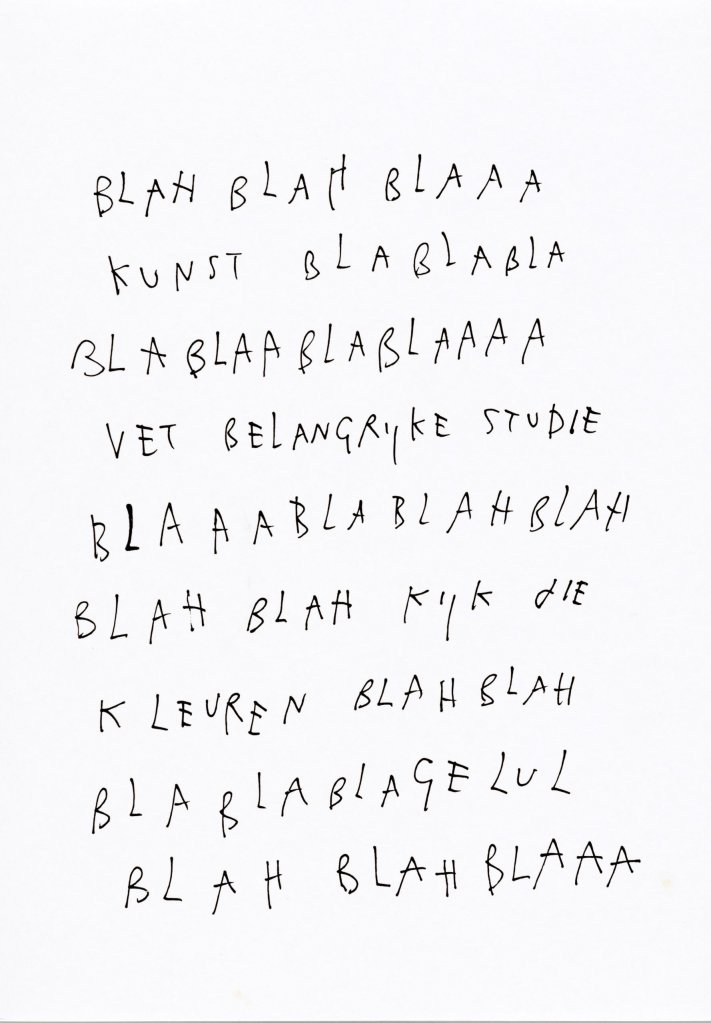 BLAH BLAH BLAAA
KUNST BLABLABLA
BLABLAABLABLAAAA
VET BELANGRIJKE STUDIE
BLAAABLA BLAHBLAH
BLAH BLAH KIJK DIE
KLEUREN BLAHBLAH
BLABLABLAGELUL
BLAH BLAHBLAAA